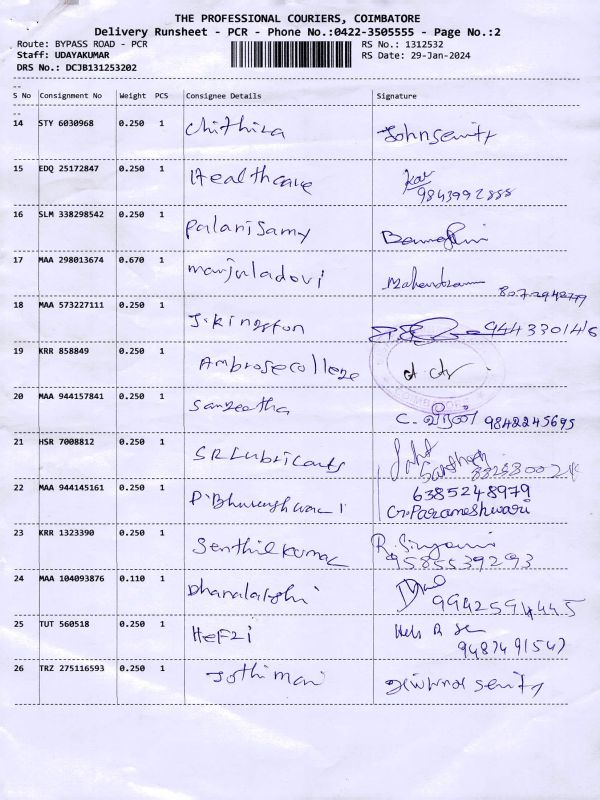 THE PROFESSIONAL COURIERS, COIMBATORE
Delivery Runsheet - PCR - Phone No.:0422-3505555 - Page No.:2
Route: BYPASS ROAD - PCR RS No.: 1312532
Staff: UDAYAKUMAR RS Date: 29-Jan-2024
DRS No.: DCJB131253202
--
S No Consignment No Weight PCS Consignee Details Signature
--
14 STY 6030968 0.250 1 Chithira
15 EDQ 25172847 0.250 1 Healthcare
9843992888
16 SLM 338298542 0.250 1 Palanisamy
17 MAA 298013674 0.670 1 manjuladevi Mahendran
18 MAA 573227111 0.250 1 J. kingston 9443301416
19 KRR 858849 0.250 1 Ambrose college
20 MAA 944157841 0.250 1 Sangeetha C. 9842245695
21 HSR 7008812 0.250 1 SR Lubricants Santhosh
22 MAA 944145161 0.250 1 P. Bhuvaneshwari 6385248979
G. Parameshwari
23 KRR 1323390 0.250 1 Senthilkumar R.
9585539293
24 MAA 104093876 0.110 1 Dhanalakshmi
9942594445
25 TUT 560518 0.250 1 HeFzi
9487491547
26 TRZ 275116593 0.250 1 Jothimani